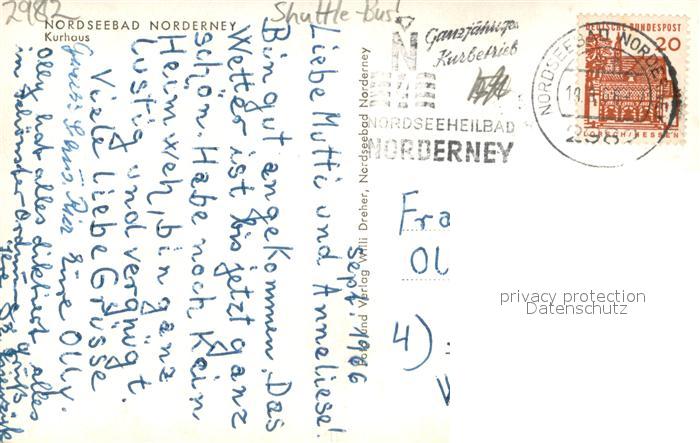 2982
NORDSEEBAD NORDERNEY
Kurhaus
Shuttle-Bus!
Ganzjähriger
Kurbetrieb
NORDSEEHEILBAD
NORDERNEY
NORDSEEBAD NORDERNEY
DEUTSCHE BUNDESPOST
20
LORSCH/HESSEN
Sept. 1966
Liebe Mutti und Anneliese!
Bin gut angekommen. Das
Wetter ist bis jetzt ganz
schön. Habe noch kein
Heimweh, bin ganz
lustig und vergnügt.
Viele liebe Grüsse
Eure Olly.
Olly hat alles diktiert, alles
im schönster Ordnung
Foto und Verlag Willi Dreher, Nordseebad Norderney
Fra
Ol
4)
privacy protection
Datenschutz